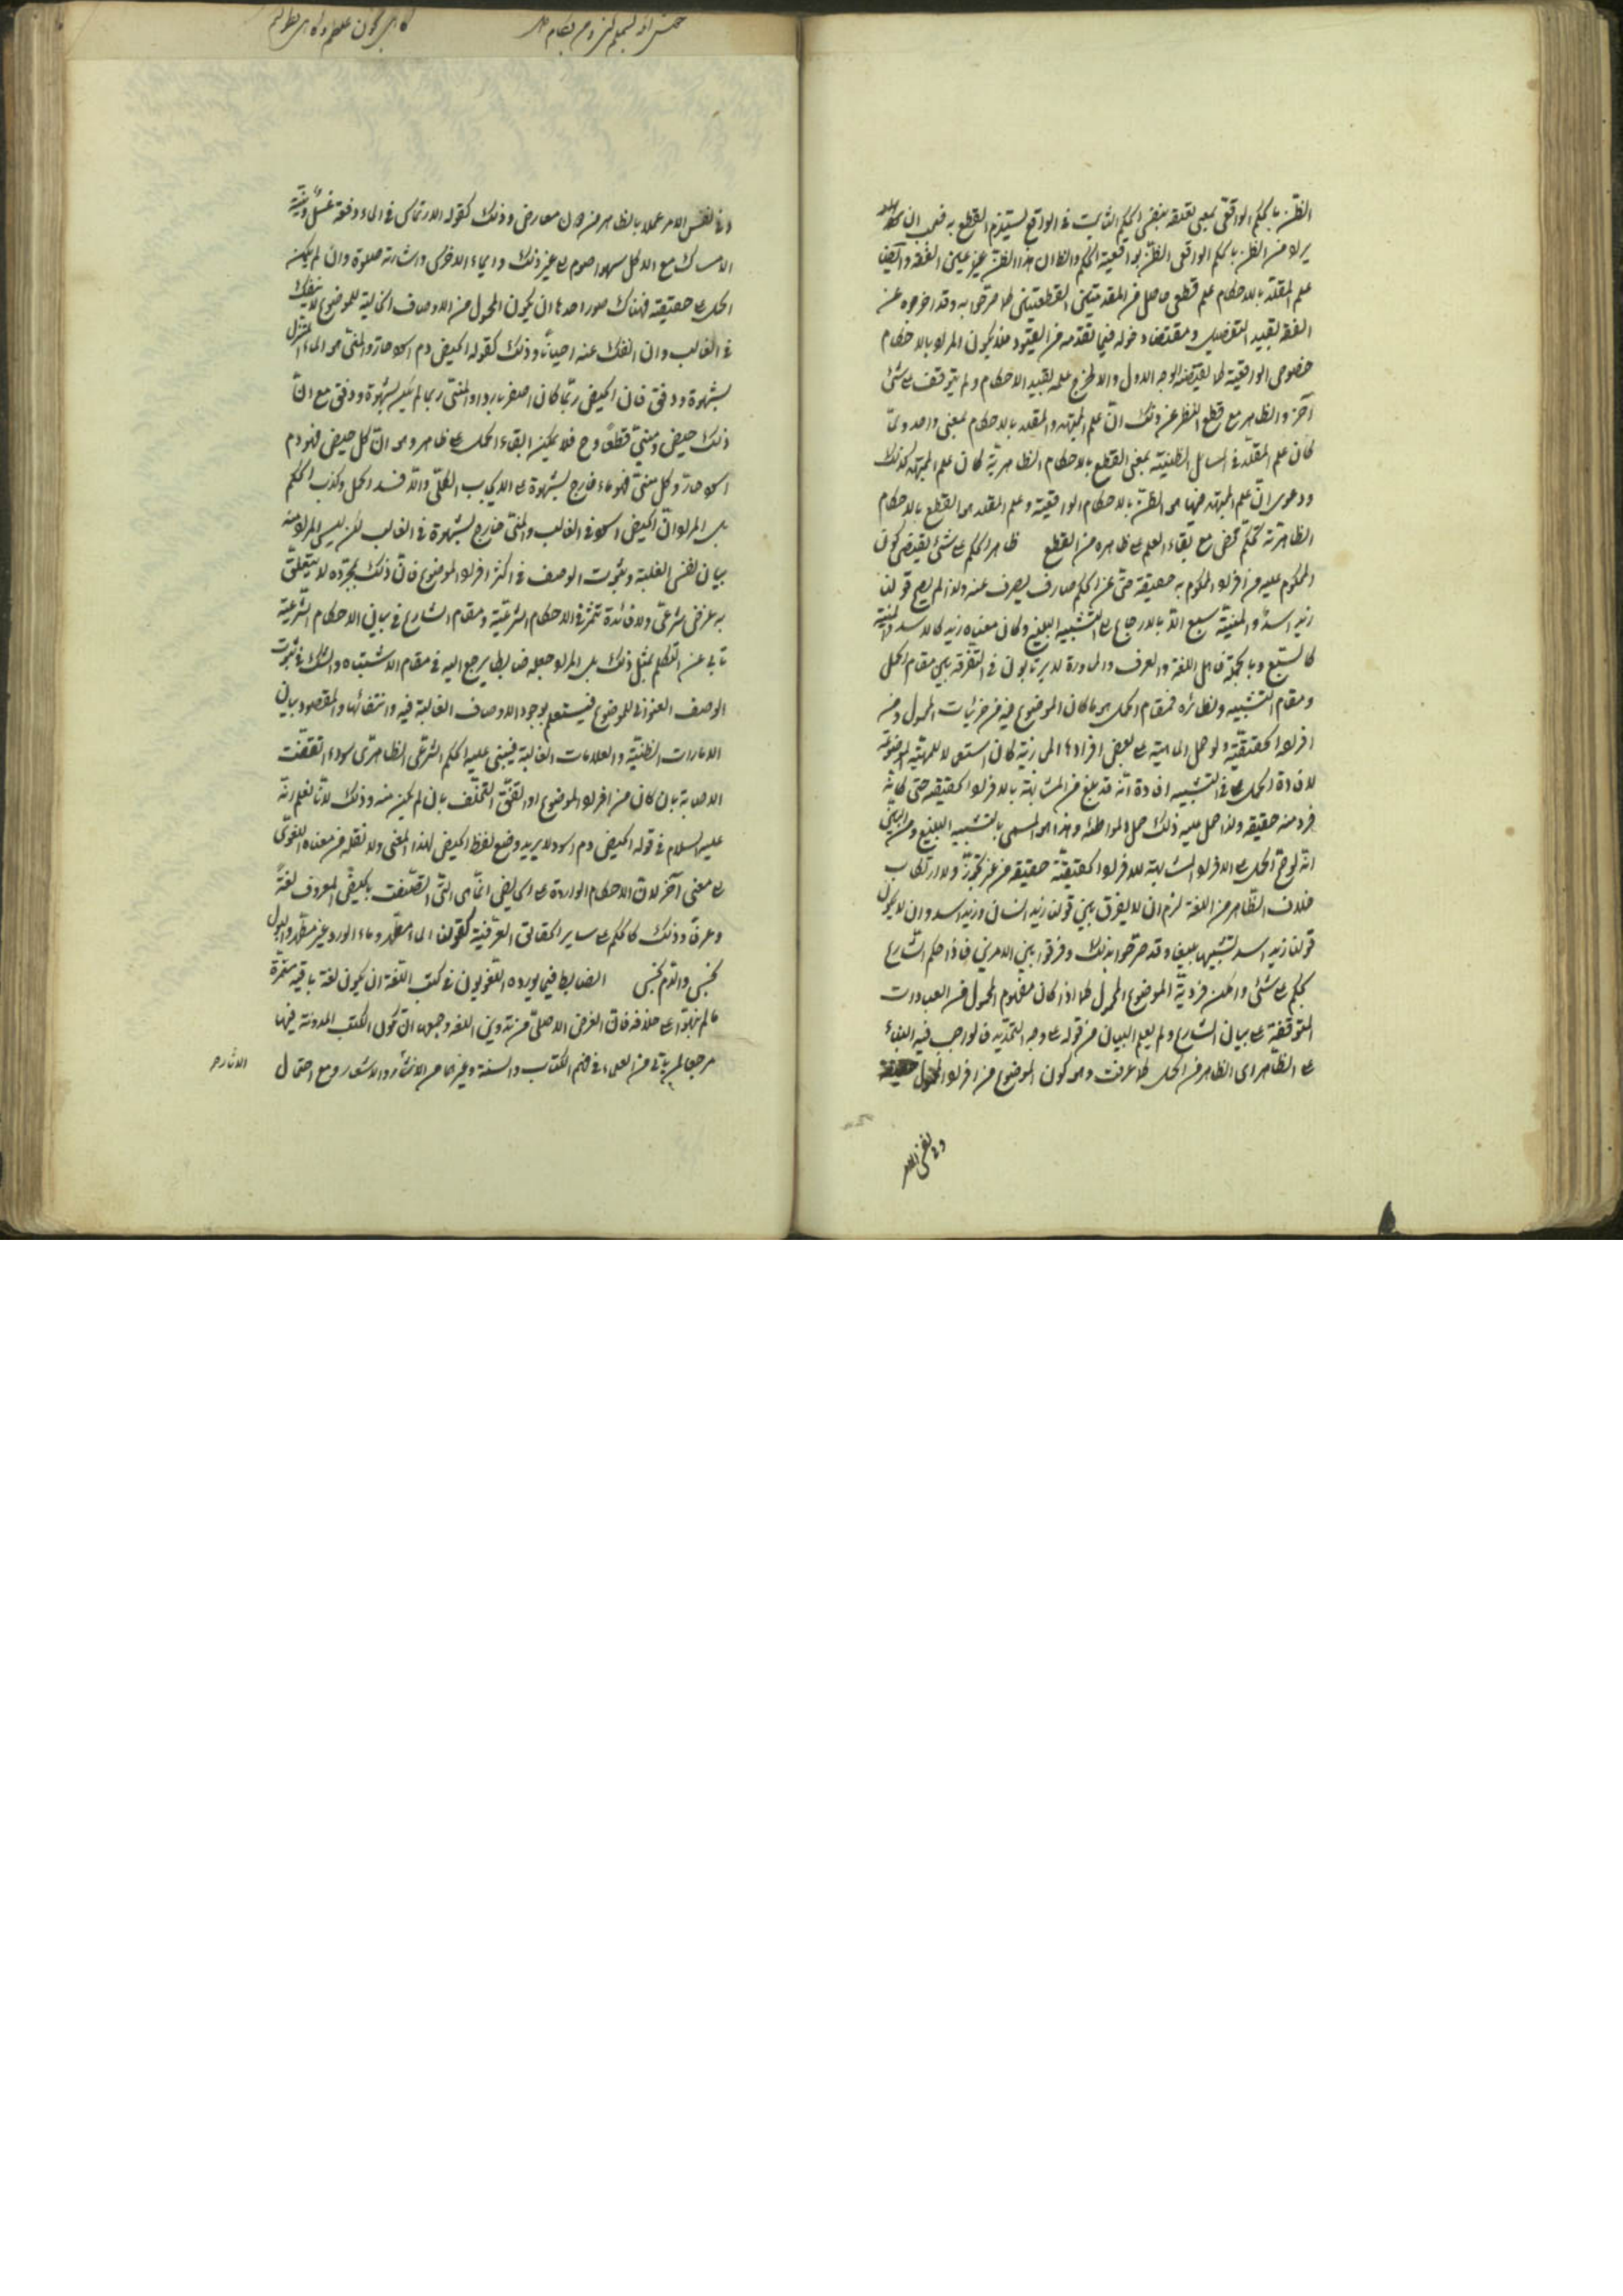 الظن بالحكم الواقعي بمعنى تعلقه بنفس الحكم الثابت في الواقع يستلزم القطع به فيجب ان
يراد من الظن بالحكم الواقعي الظن بواقعية الحكم والظ ان هذا الظن غير عين الفقه وايضا
علم المقلد بالاحكام علم قطعي حاصل من المقدمتين القطعيتين كما صرحوا به وقد اخرجوه عن
الفقه بقيد التفصيل ومقتضاه دخوله فيما تقدمه من القيود فلا يكون المراد بالاحكام
خصوص الواقعية كما يقتضيه الوجه الاول والا لخرج علمه بقيد الاحكام ولم يتوقف على شئ
آخر والظاهر مع قطع النظر عن ذلك انّ علم المجتهد والمقلد بالاحكام بمعنى واحد ولمّا
كان علم المقلّد في المسائل الظنية بمعنى القطع بالاحكام الظاهرية كان علم المجتهد كذلك
ودعوى انّ علم المجتهد فيها هو الظنّ بالاحكام الواقعية وعلم المقلد هو القطع بالاحكام
الظاهرية تحكّم محض مع بقاء العلم على ظاهره من القطع ظاهر الحكم على شئ يقتضي كون
المحكوم عليه من افراد المحكوم به حقيقة حتى عن الحكم صارف يصرف عنه ولذا لم يصح قولنا
زيد اسدٌ والمنيّة سبع الّا بالارجاع الى التشبيه البليغ وكان معناه زيد كالاسد والمنية
كالسبع وبالجملة فاهل اللغة والعرف والمحاورة لا يرتابون في التفرقة بين مقام الحمل
ومقام التشبيه ونظائره فمقام الحمل هو ما كان الموضوع فيه من جزئيات المحمول ومن
افراده الحقيقيّة ولو حمل الماهية على بعض افرادها المجازية كان استعمالا للمهية الموضوعة
لافادة الحمل في التشبيه افادة انّه قد بلغ من المشابهة بالافراد الحقيقة حتى كانّه
فرد منه حقيقة ولذا حمل عليه ذلك حمل المواطئة وهذا هو المسمى بالتشبيه البليغ ومن البين
انّه لو صحّ الحمل على الافراد المشابهة للافراد الحقيقيّة حقيقة من غير تجوّز ولا ارتكاب
خلاف الظّاهر من اللغة لزم ان لا يفرق بين قولنا زيد انسان وزيد اسد وان لا يكون
قولنا زيد اسد تشبيها بليغا وقد صرّحوا بذلك وفرّقوا بين الامرين فاذا حكم الشّارع
بحكم على شئ وامكن فرديّة الموضوع للمحمول كما اذا كان مفهوم المحمول من العبادات
المتوقفة على بيان الشارع ولم يعلم البيان من قوله على وجه التحديد فالواجب فيه البناء
على الظّاهر اي الظاهر من الحمل كما عرفت وهو كون الموضوع من افراد المحمول حقيقة
وفي نفس الامر
وفي نفس الامر عملا بالظاهر من دون معارض وذلك كقوله الارتماس في الماء دفعة غسلٌ ونية
الامساك مع الاكل سهوا صوم الى غير ذلك وايماء الاخرس واشارته صلوة وان لم يكن
الحمل على حقيقته فهناك صور احدها ان يكون المحمول من الاوصاف الخالية للموضوع لا ينفك
في الغالب وان انفك عنه احياناً وذلك كقوله الحيض دم اسود حار والمنيّ هو الماء المنزل
بشهوة ودفق فان الحيض ربّما كان اصفر باردا والمنيّ ربما لم يكن بشهوة ودفق مع انّ
ذلك حيض ومنيّ قطعًا وح فلا يمكن ابقاء الحمل على ظاهره وهو انّ كل حيض فهو دم
اسود حارّ وكل منيّ فهو ماء خارج بشهوة على الايجاب الكلّي والّا فسد الحمل وكذب الحكم
بل المراد انّ الحيض اسود في الغالب والمنيّ خارج بشهوة في الغالب لكن ليس المراد منه
بيان نفس الغلبة وثبوت الوصف في اكثر افراد الموضوع فانّ ذلك بمجرّده لا يتعلّق
به غرض شرعيّ ولا فائدة تثمر في الاحكام الشرعيّة ومقام الشارع في بيان الاحكام الشّرعيّة
تأبى عن التكلم بمثل ذلك بل المراد جعله ضابطا يرجع اليه في مقام الاشتباه والشك في ثبوت
الوصف العنواني للموضوع فيستعلم بوجود الاوصاف الغالبة فيه وانتفائها والمقصود بيان
الامارات الظنيّة والعلامات الغالبة فيبتنى عليه الحكم الشرعيّ الظاهري سواء اتفقت
الاصابة بان كان من افراد الموضوع او اتفق التخلّف بان لم يكن منه وذلك لانّا نعلم انّه
عليه السلام في قوله الحيض دم اسود لا يريد وضع لفظ الحيض لهذا المعنى ولا نقله من معناه اللغويّ
الى معنى آخر لانّ الاحكام الواردة على الحايض انّما هي التي اتّصفت بالحيض المعروف لغةً
وعرفًا وذلك كالحكم على ساير الحقائق العرفية كقولنا الماء مطهّر وماء الورد غير مطهّر والبول
نجس والدّم نجس الضابط فيما يورده اللّغويون في كتب اللّغة ان يكون لغة باقية مستمرّة
ما لم ينبّهوا على خلافه فانّ الغرض الاصلي من تدوين اللغة وجمعها ان تكون الكتب المدونة فيها
مرجعا لمن ياتي من العلماء في فهم الكتاب والسنة وغيرهما من الانشاء والاشعار ومع احتمال